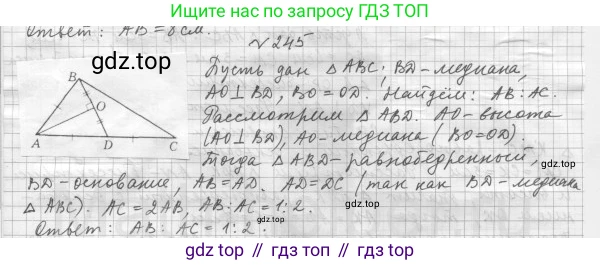 Ищите нас по запросу ГДЗ ТОП
Ответ: AB = 8 см.
gdz.top
№ 245
B
O
A
D
C
Пусть дан △ABC; BD-медиана,
AO⊥BD, BO=OD. Найдём: AB:AC.
Рассмотрим △ABD. AO-высота
(AO⊥BD), AO-медиана (BO=OD).
Тогда △ABD-равнобедренный,
BD-основание, AB=AD. AD=DC (так как BD-медиана
△ABC). AC=2AB, AB:AC=1:2.
Ответ: AB:AC=1:2.
gdz.top
gdz.top // гдз.топ // gdz.top